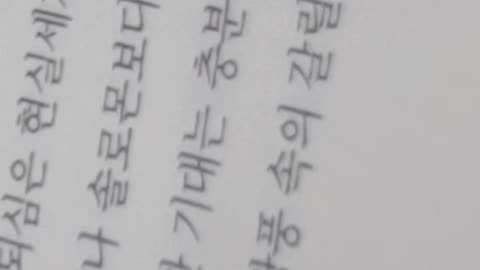 되심은 현실세
나 솔로몬보다
기대는 충분
풍 속의 갈릴